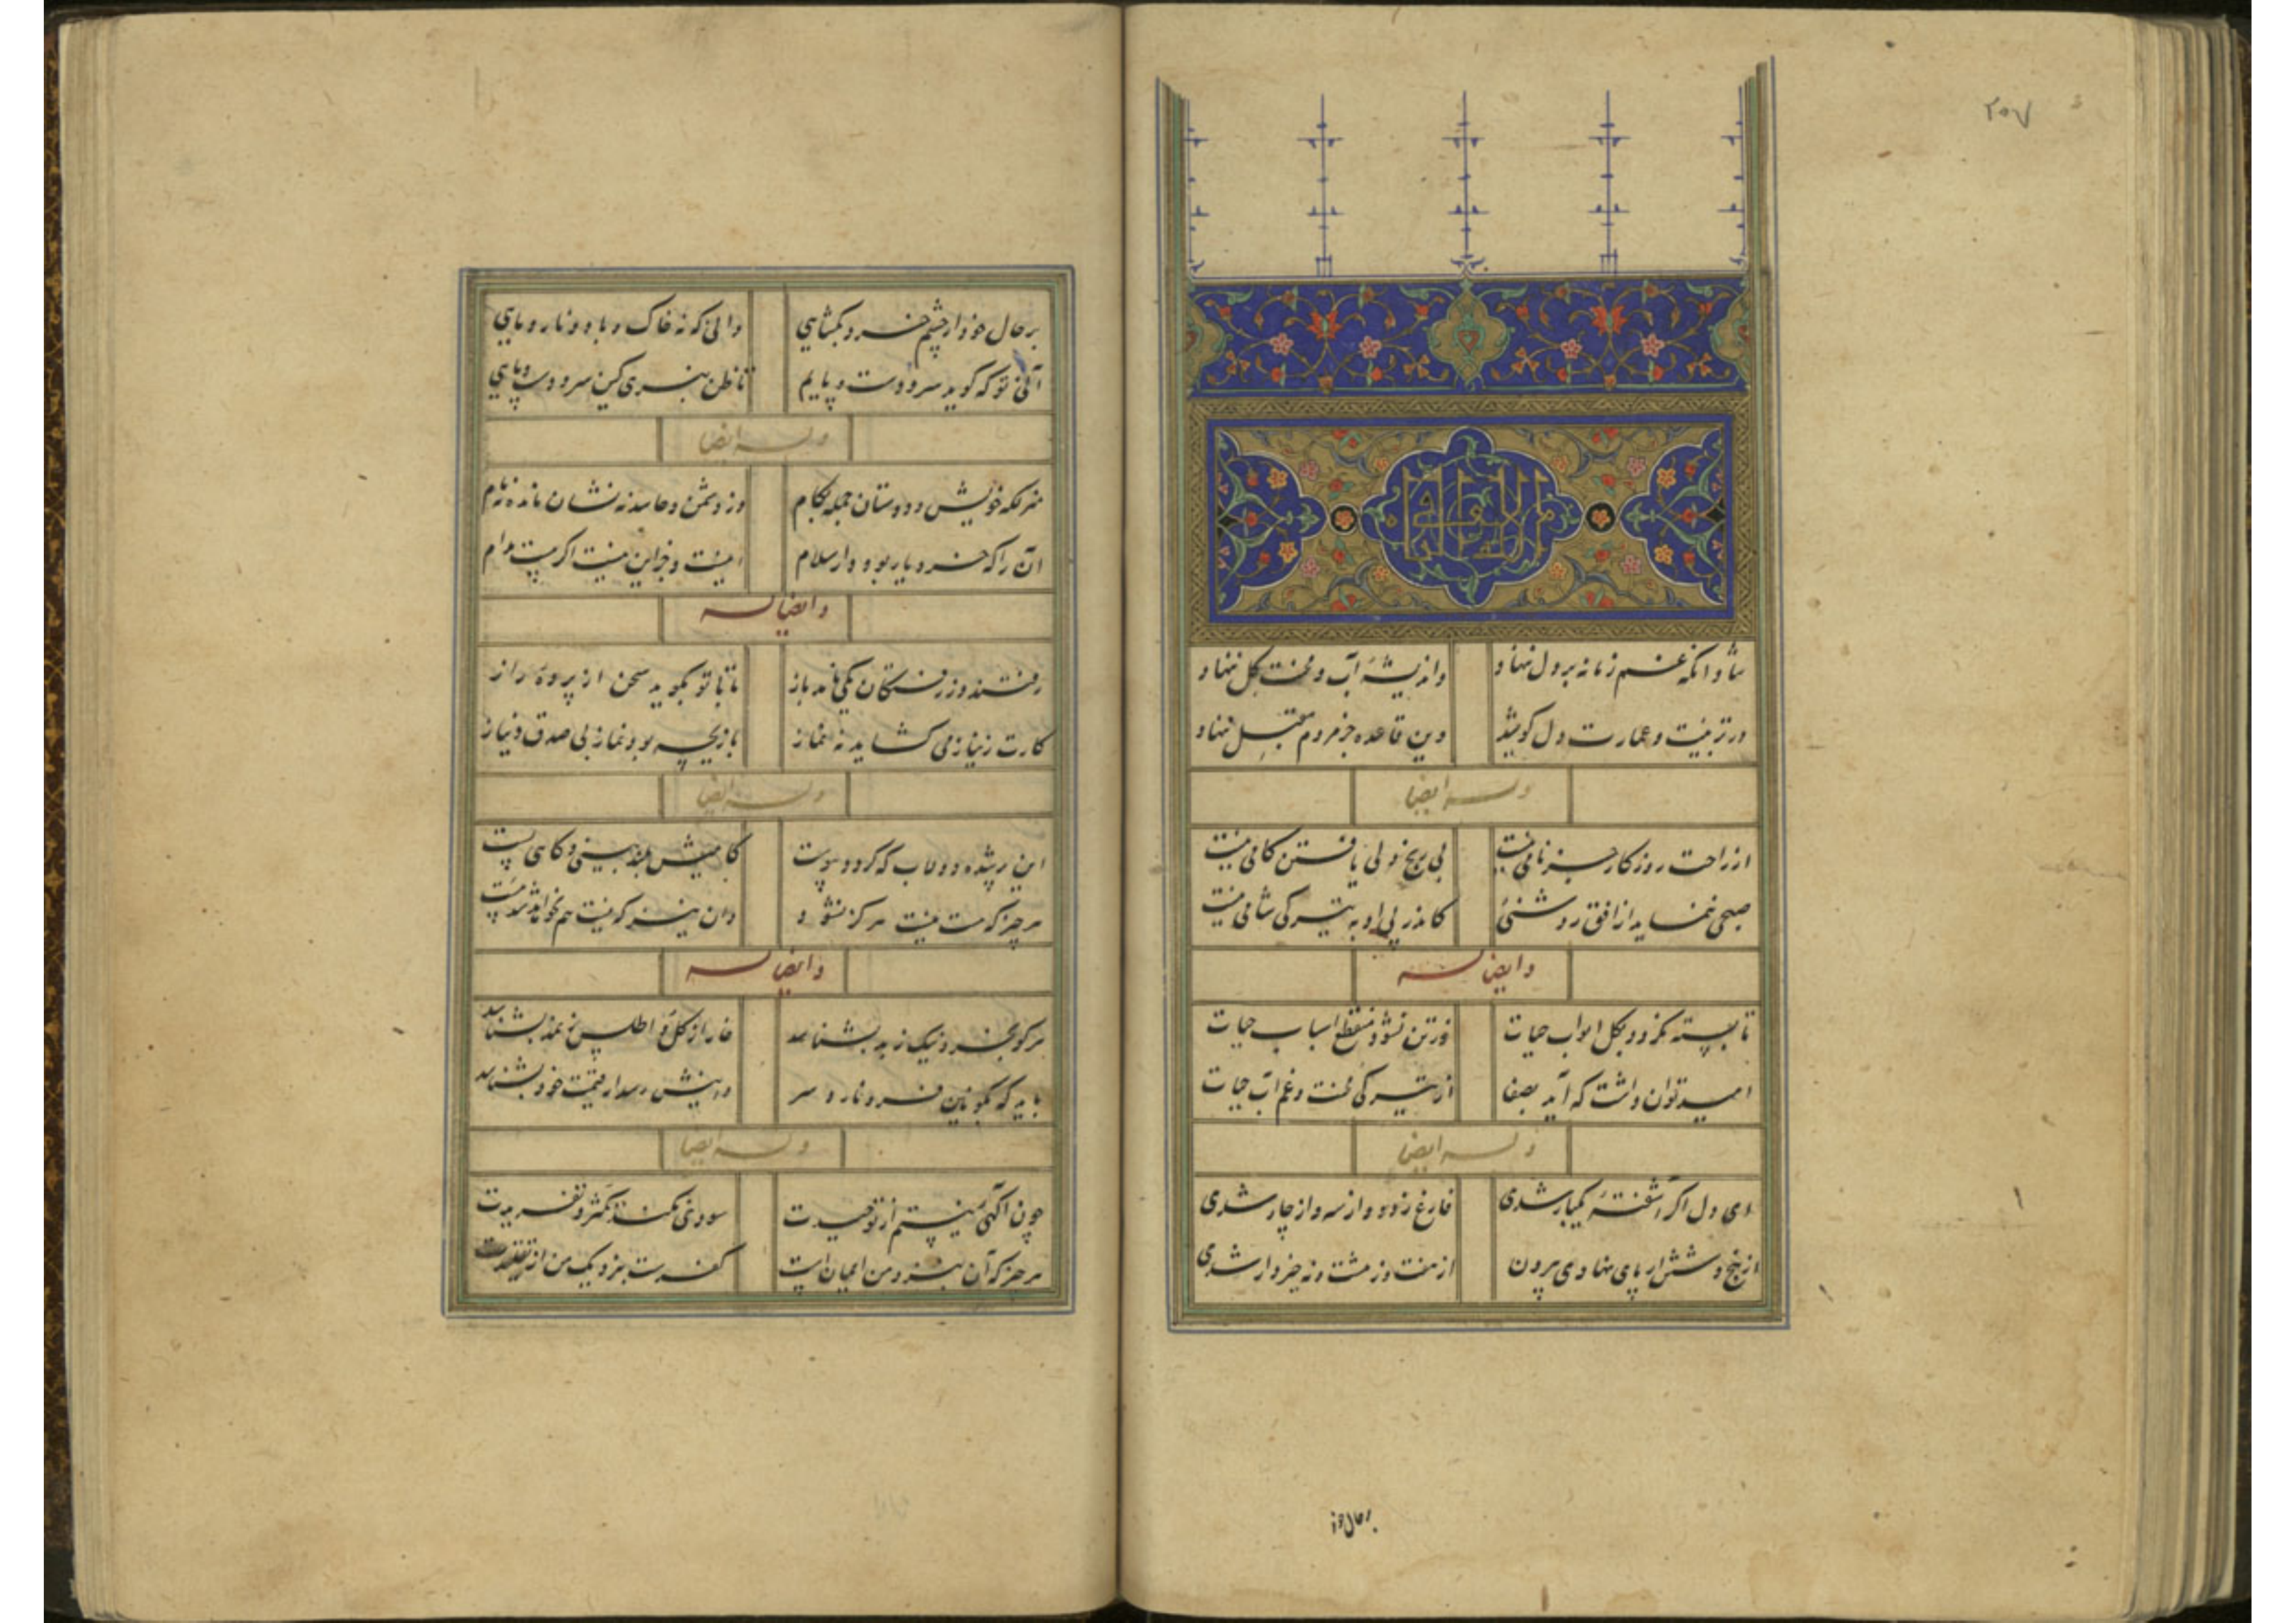 ۲۰۷
شاد آنکه غم زمانه بر دل ننهاد
واندیشهٔ آب و محنت گل ننهاد
در تربیت و عمارت دل کوشید
وین قاعده جز مردم مقبل ننهاد
وله ایضا
از راحت روزگار جز نامی نیست
بی رنج دلی یافتن کامی نیست
صبحی ننماید از افق روشنئی
کاندر پی او به تیرگی شامی نیست
وایضا له
تا بسته نگردد بگل ابواب حیات
وز تن نشود منقطع اسباب حیات
امید توان داشت که آید بصفا
از تیرگی محنت و غم آب حیات
وله ایضا
ای دل اگر آشفتهٔ یکبار شدی
فارغ ز دو و از سه و از چار شدی
از پنج و شش ار پای نهادی بیرون
از هفت و ز هشت و نه خبردار شدی
بر حال خود
بر حال خود ار چشم خرد بگشایی
دانی که نه خاک و باد و نار و مایی
آنی تو که گوید سر و دست و پایم
تا ظن نبری کین سر و دست و پایی
وله ایضا
خویش و دوستان جمله بکام
وز دشمن و حاسد نه نشان مانده نه نام
آن را که خرد یار بود دار سلام
اینست و جز این نیست اگر هست مدام
وایضا له
رفتند و ز رفتگان یکی نامد باز
تا با تو بگوید سخن از پردهٔ راز
کارت ز نیاز می گشاید نه نماز
بازیچه بود نماز بی صدق و نیاز
وله ایضا
این رشته دولاب که گردد پیوست
گاهیش بلند بینی و گاهی پست
هر چیز که هست نیست هرگز نشود
وان نیز که نیست هم نخواهد شد هست
وایضا له
هر کو بخرد نیک ز بد بشناسد
خار از گل و اطلس ز نمد بشناسد
باید که نکوئین فرو نارد سر
وانیش رسد ار قیمت خود بشناسد
وله ایضا
چون آگهی نیستم از توحیدت
سودی نکند تفکر و تفریدت
هر چیز که آن بنزد من ایمان است
کفرست بنزدیک من از تقلیدت